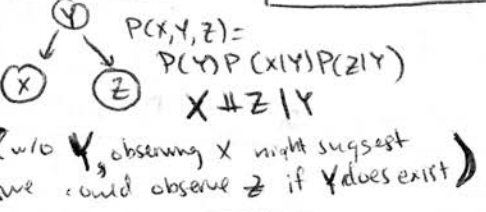 Y
P(X,Y,Z)=
P(Y)P(X|Y)P(Z|Y)
X Z
X ⫫ Z | Y
(w/o Y, observing X might suggest
we could observe Z if Y does exist)